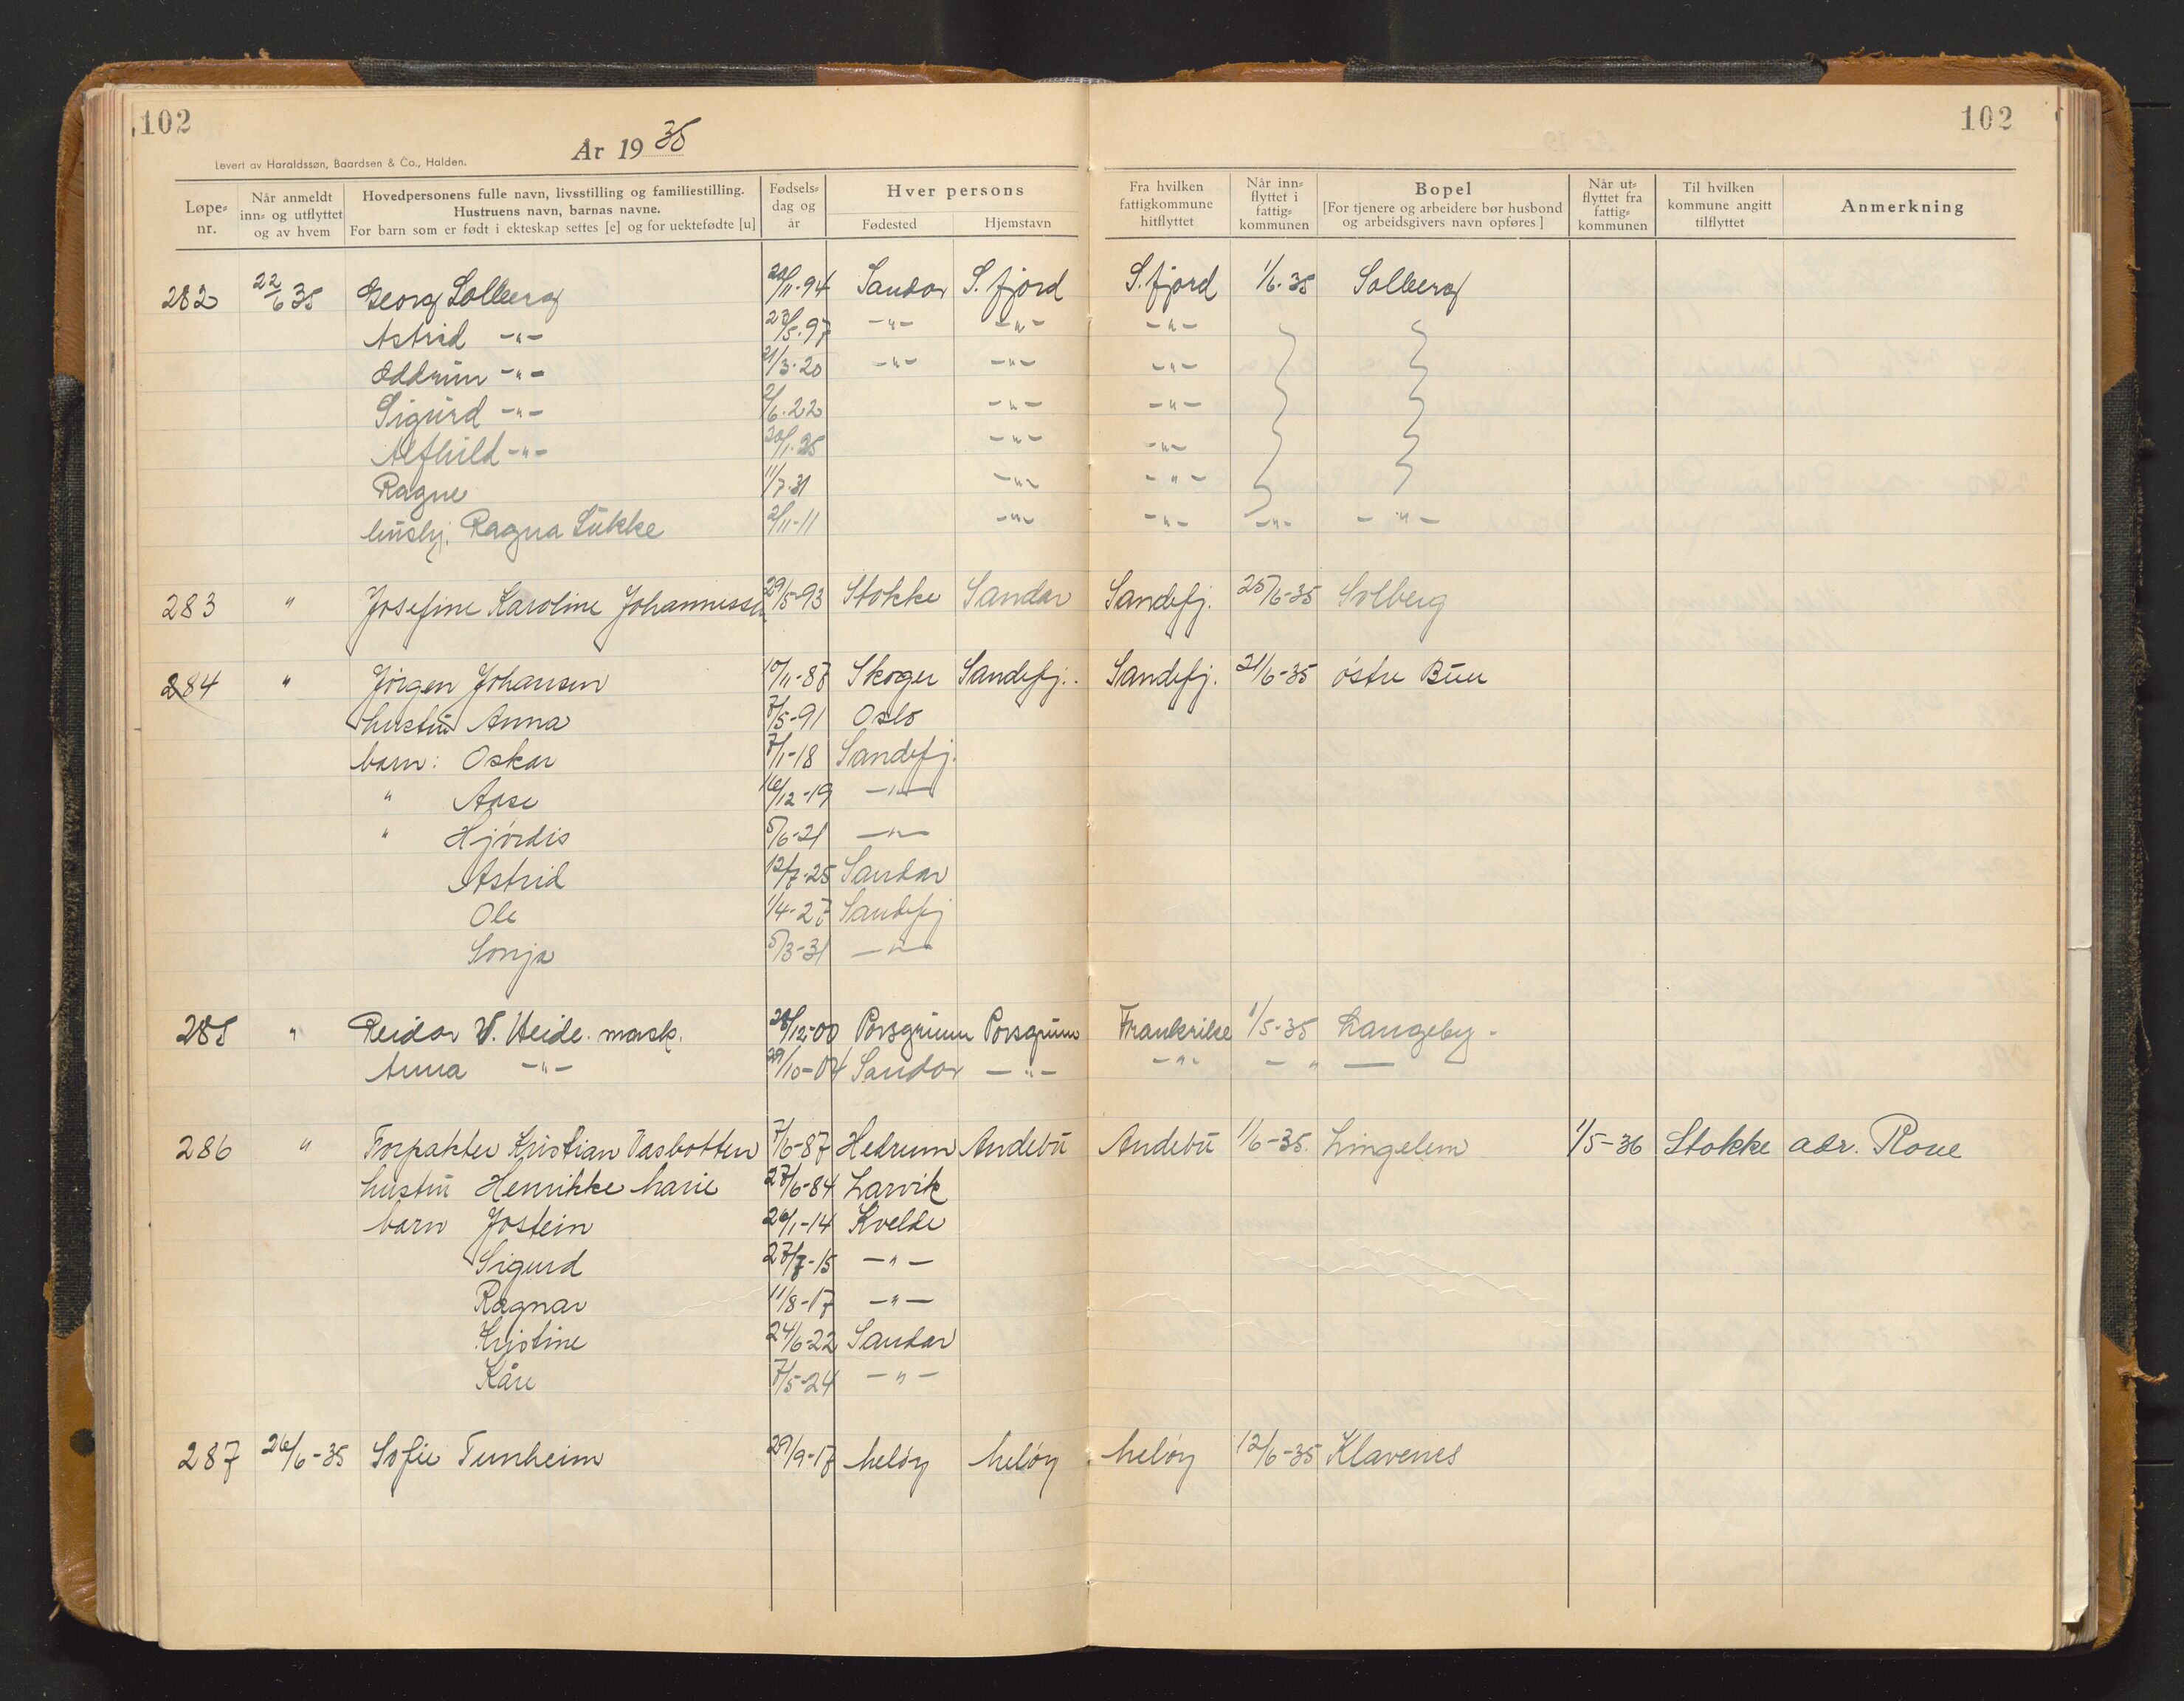 102
102
År 1935
Levert av Haraldssøn, Baardsen & Co., Halden.
Løpe-nr. Når anmeldt inn- og utflyttet og av hvem Hovedpersonens fulle navn, livsstilling og familiestilling. Hustruens navn, barnas navne. For barn som er født i ekteskap settes [e] og for uektefødte [u] Fødsels-dag og år Hver persons Fødested Hjemstavn Fra hvilken fattigkommune hitflyttet Når inn-flyttet i fattig-kommunen Bopel [For tjenere og arbeidere bør husbond og arbeidsgivers navn opføres.] Når ut-flyttet fra fattig-kommunen Til hvilken kommune angitt tilflyttet Anmerkning
282 22/6 35 Georg Solberg 20/11-94 Sandar S. fjord S. fjord 1/6-35 Solberg
Astrid -"- 23/5-97 -"- -"- -"-
Oddrun -"- 21/3-20 -"- -"- -"-
Sigurd -"- 2/6-22 -"- -"-
Alfhild -"- -"- -"-
Ragne 11/7-31 -"- -"-
hushj. Ragna Lukke 2/11-11 -"- -"- -"- -"-
283 " Josefine Karoline Johannessen 29/5-93 Stokke Sandar Sandefj. 25/6-35 Solberg
284 " Jørgen Johansen 10/11-87 Skoger Sandefj. Sandefj. 21/6-35 østre Buer
hustru Anna 7/5-91 Oslo
barn: Oskar 7/1-18 Sandefj.
" Aase 16/12-19 -"-
" Hjørdis 5/6-21 -"-
Astrid 12/7-25 Sandar
Ole 1/4-27 Sandefj
Sonja 5/3-31 -"-
285 " Reidar W. Heide. mask. 28/12-00 Porsgrunn Porsgrunn Frankrike 1/5-35 Langeby -
Anna -"- 29/10-04 Sandar -"- -"- -"-
286 " Forpakter Kristian Vasbotten 7/6-87 Hedrum Andebu Andebu 1/6-35. Lingelem 1/5-36 Stokke adr. Roue
hustru Henrikke Marie 27/6-84 Larvik
barn Jostein 26/1-14 Kvelde
Sigurd 27/7-15 -"-
Ragnar 11/8-17 -"-
Kristine 24/6-22 Sandar
Kåre 7/5-24 -"-
287 26/6-35 Sofie Tunheim 29/9-17 Meløy Meløy Meløy 12/6-35 Klavenes